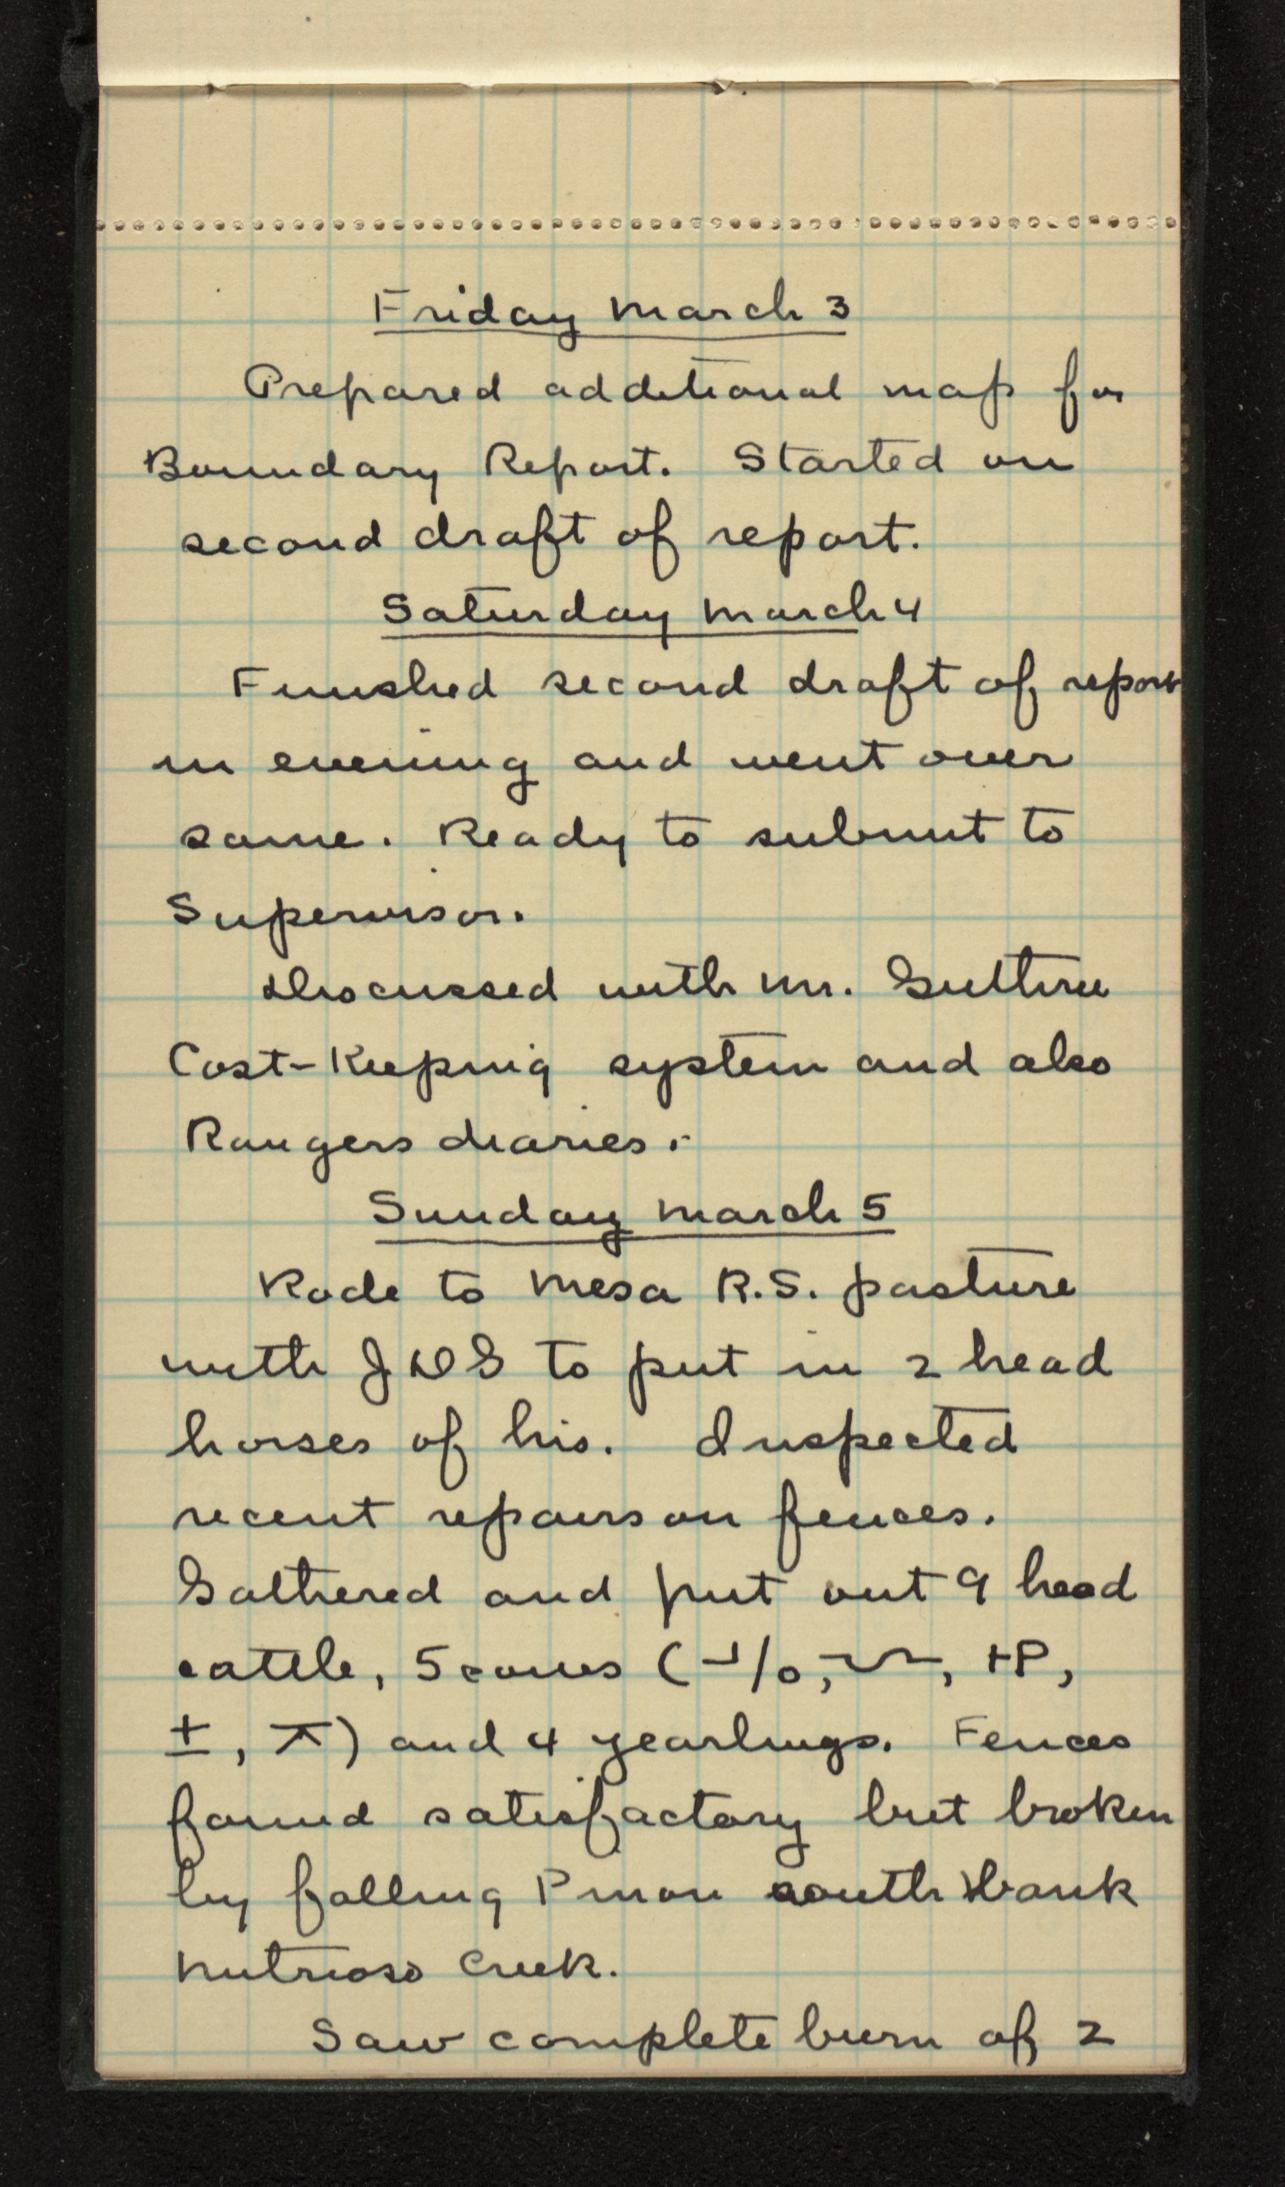 Friday March 3
Prepared additional map for
Boundary Report. Started on
second draft of report.
Saturday March 4
Finished second draft of report
in evening and went over
same. Ready to submit to
Supervisor.
Discussed with Mr. Guthrie
Cost-Keeping system and also
Rangers diaries.
Sunday March 5
Rode to Mesa R.S. pasture
with JDG to put in 2 head
horses of his. Inspected
recent repairs on fences.
Gathered and put out 9 head
cattle, 5 cows (
±, ⊼) and 4 yearlings. Fences
found satisfactory but broken
by falling Pinon south bank
Nutrioso Creek.
Saw complete burn of 2